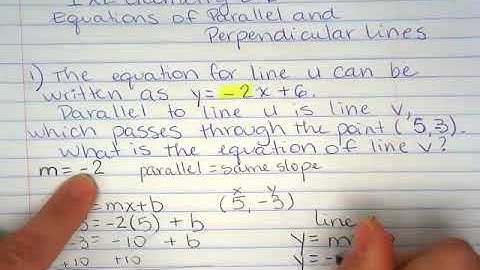 Equations of Parallel and
Perpendicular lines
1) The equation for line u can be
written as y = -2x + 6.
Parallel to line u is line v,
which passes through the point (5,3).
What is the equation of line v?
m = -2 parallel = same slope
x y
= mx+b (5,-3) line
= -2(5) + b y = m
-3 = -10 + b y = -
+10 +10